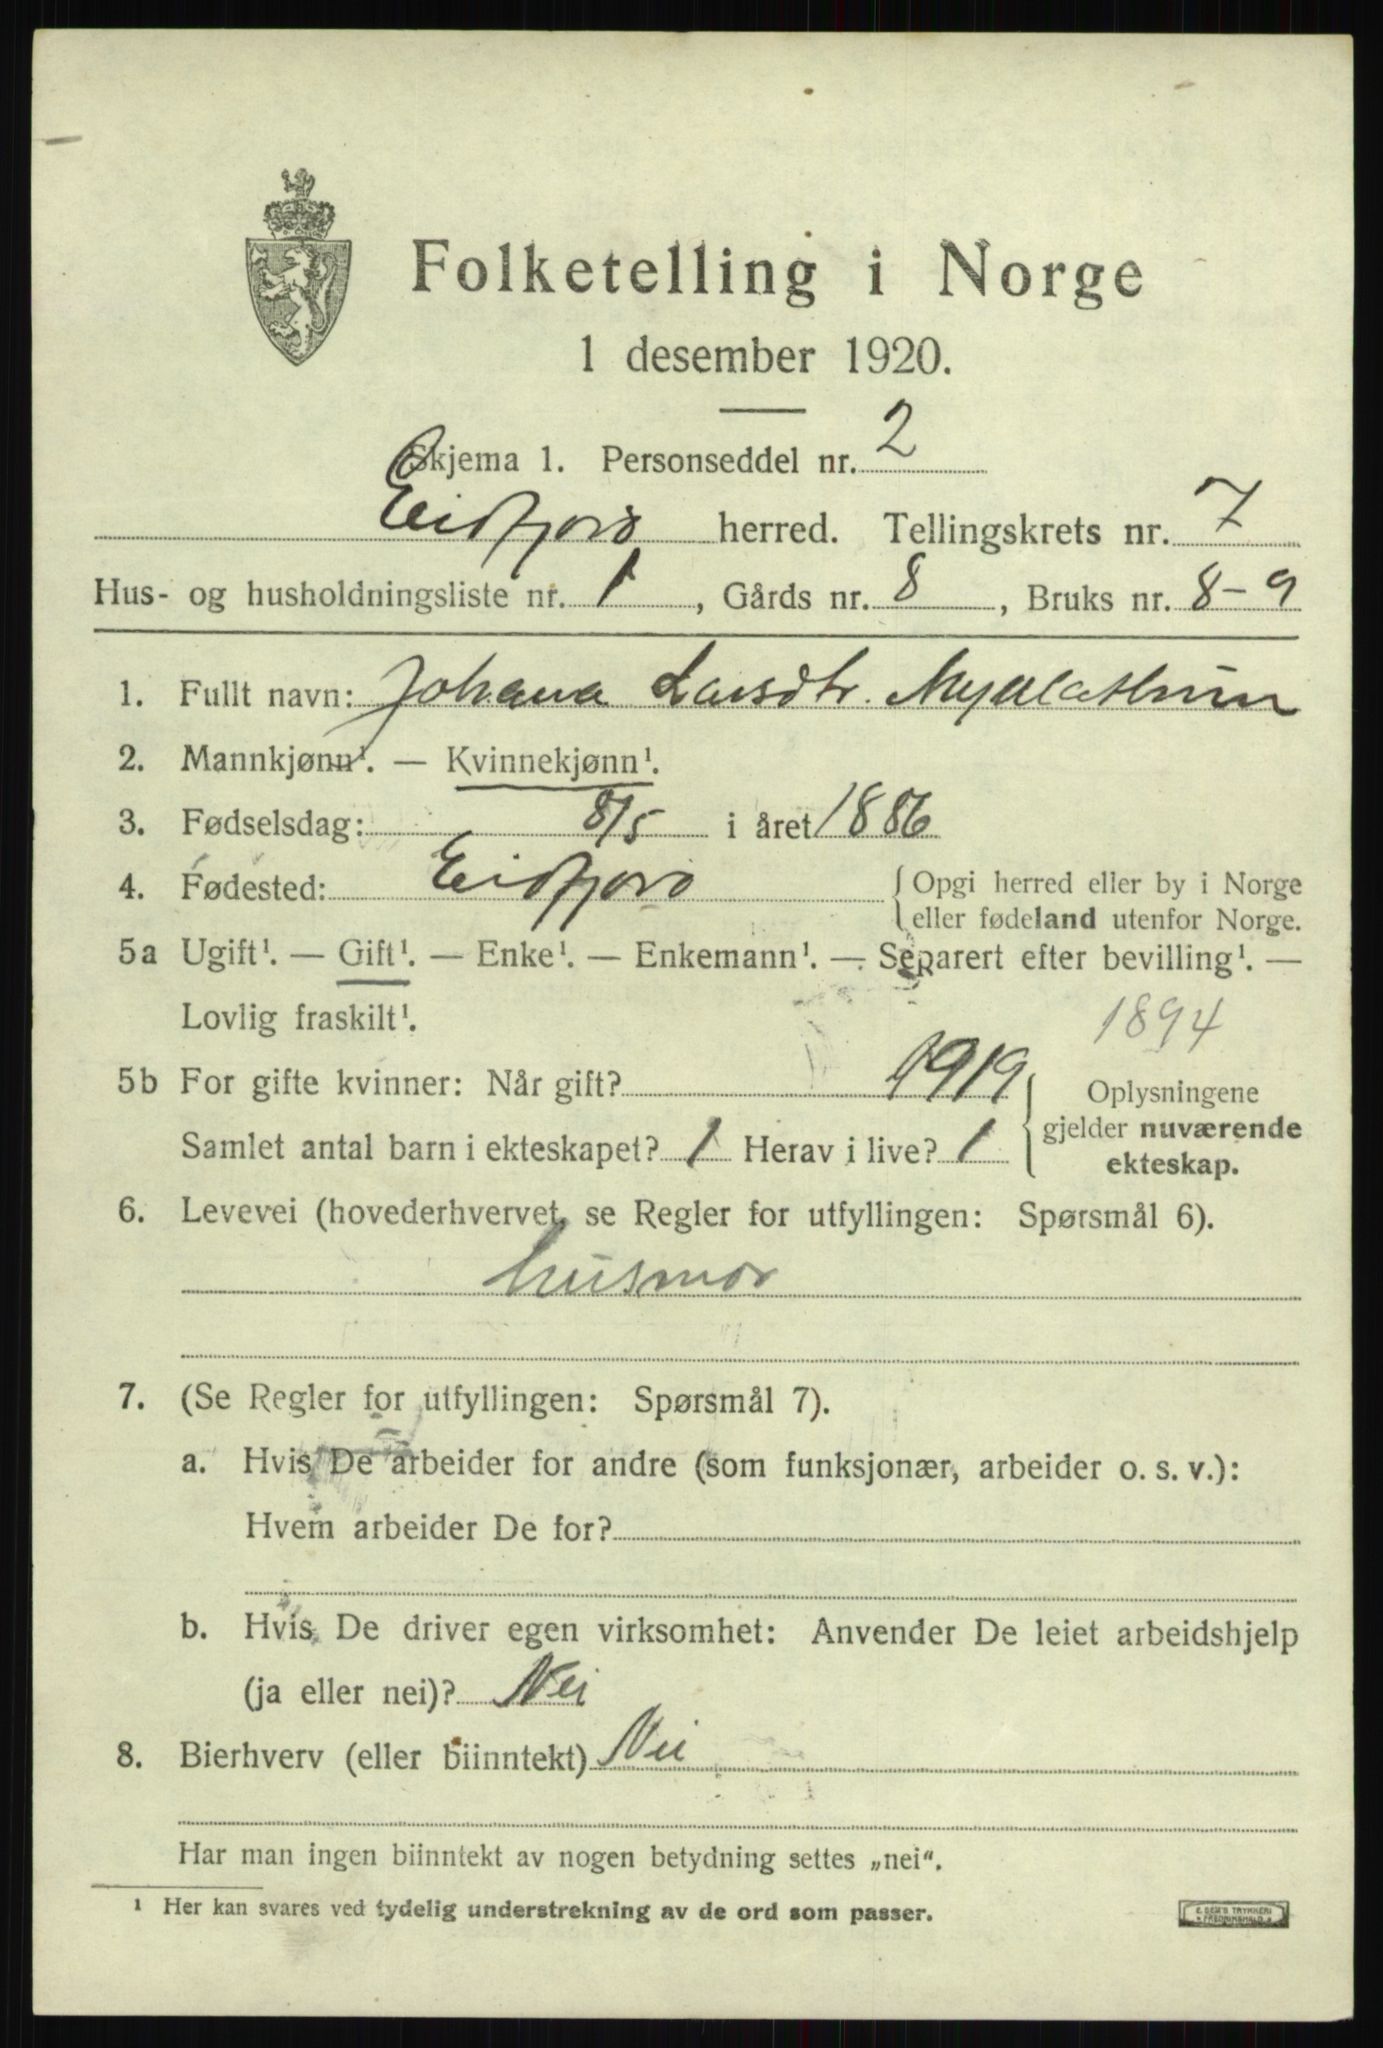 Folketelling i Norge
1 desember 1920.
Skjema 1. Personseddel nr. 2
Eidfjord herred. Tellingskrets nr. 7
Hus- og husholdningsliste nr. 1, Gårds nr. 8, Bruks nr. 8-9
1. Fullt navn: Johana Larsdtr.
2. Mannkjønn¹. — Kvinnekjønn¹.
3. Fødselsdag: 8/5 i året 1886
4. Fødested: Eidfjord { Opgi herred eller by i Norge
eller fødeland utenfor Norge.
5a Ugift¹. — Gift¹. — Enke¹. — Enkemann¹. — Separert efter bevilling¹. —
Lovlig fraskilt¹. 1894
5b For gifte kvinner: Når gift? 1919 { Oplysningene
Samlet antal barn i ekteskapet? 1 Herav i live? 1 gjelder nuværende
ekteskap.
6. Levevei (hovederhvervet, se Regler for utfyllingen: Spørsmål 6).
husmor
7. (Se Regler for utfyllingen: Spørsmål 7).
a. Hvis De arbeider for andre (som funksjonær, arbeider o. s. v.):
Hvem arbeider De for?
b. Hvis De driver egen virksomhet: Anvender De leiet arbeidshjelp
(ja eller nei)? Nei
8. Bierhverv (eller biinntekt) Nei
Har man ingen biinntekt av nogen betydning settes „nei“.
¹ Her kan svares ved tydelig understrekning av de ord som passer.
E. SEM'S TRYKKERI
FREDRIKSHALD